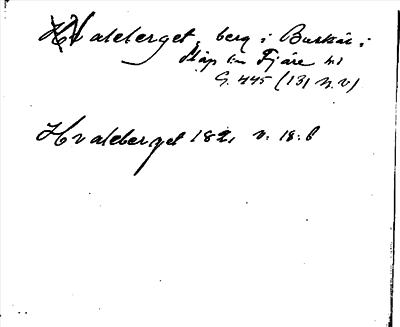 Hvaleberget, berg i Buskär i
Släp sn Fjäre hd
G. 445 (131 n.v.)
Hvaleberget 1821 v. 18:6